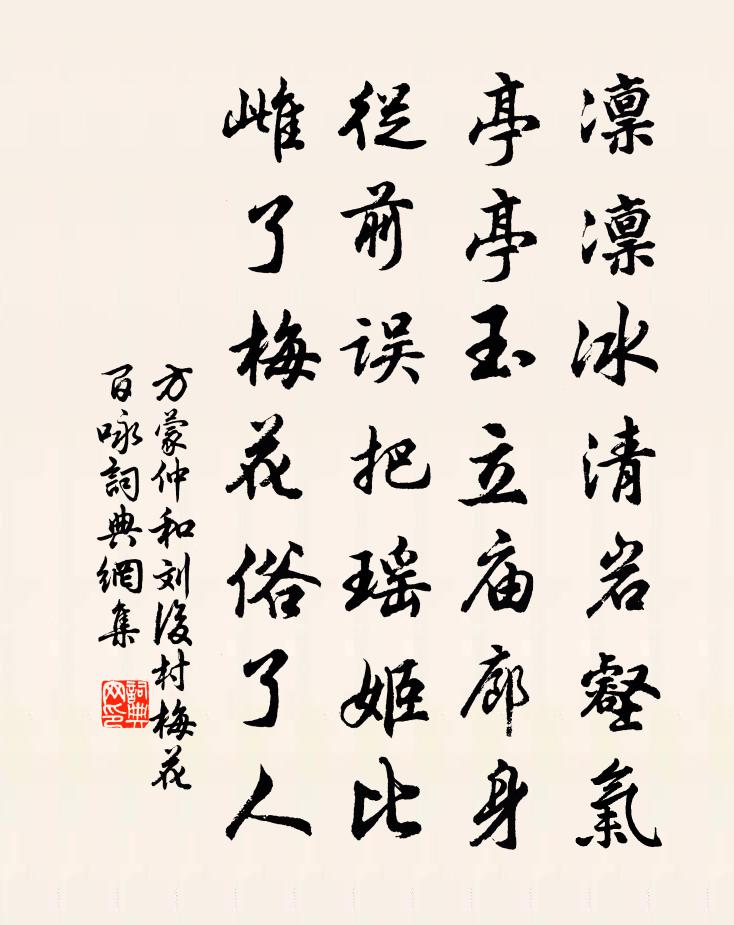 凛凛冰清岩壑氣
亭亭玉立庙廊身
從前误把瑶姬比
雌了梅花俗了人
方蒙仲和刘後村梅花
百咏詞典網集
詞典網印